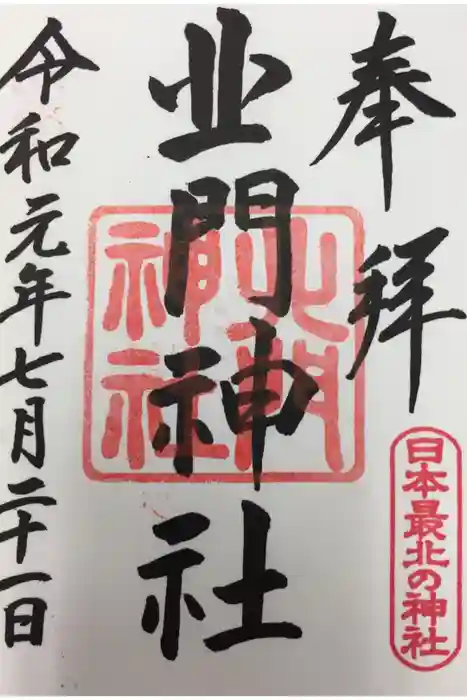 奉拝
日本最北の神社
北門神社
北門神社
令和元年七月二十一日